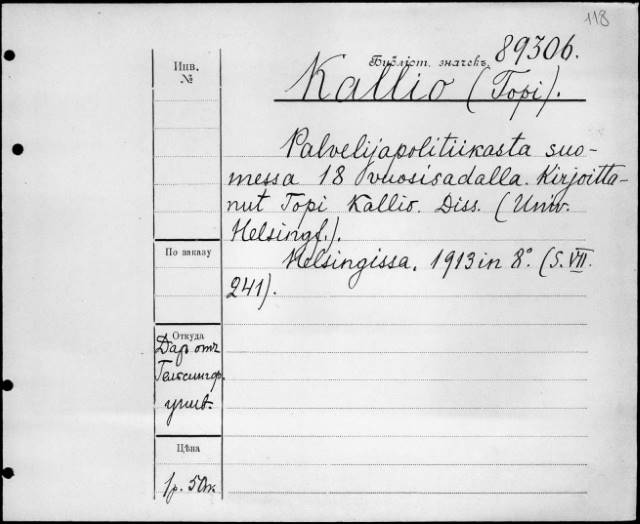 118
Библіот. значекъ. 89306.
Инв. №
Kallio (Topi).
Palvelijapolitiikasta suo-
messa 18 vuosisadalla. Kirjoitta-
nut Topi Kallio. Diss. (Univ.
Helsingf.).
Helsingissa, 1913 in 8°. (S. VII.
241).
По заказу
Откуда
Даръ отъ
Гельсингф.
унив.
Цѣна
1р. 50к